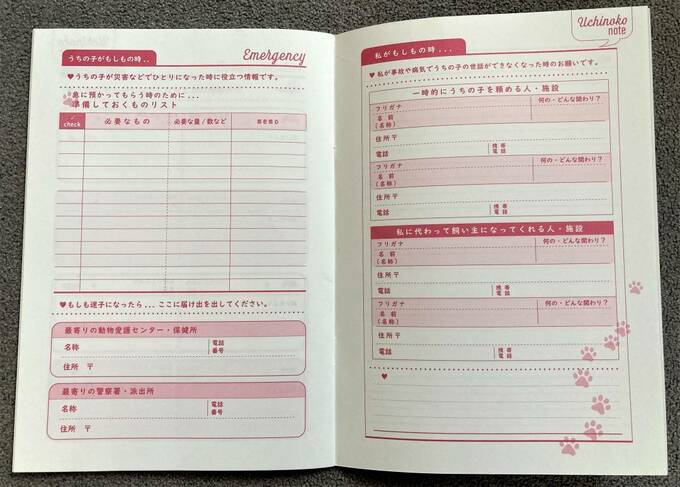 うちの子がもしもの時..
Emergency
♥うちの子が災害などでひとりになった時に役立つ情報です。
急に預かってもらう時のために...
準備しておくものリスト
✓
check
必要なもの
必要な量/数など
memo
♥もしも迷子になったら...ここに届け出を出してください。
最寄りの動物愛護センター・保健所
名称
電話
番号
住所 〒
最寄りの警察署・派出所
名称
電話
番号
住所 〒
Uchinoko
note
私がもしもの時...
♥私が事故や病気でうちの子の世話ができなくなった時のお願いです。
一時的にうちの子を頼める人・施設
フリガナ
何の・どんな関わり?
名前
(名称)
住所〒
電話
携帯
電話
フリガナ
何の・どんな関わり?
名前
(名称)
住所〒
電話
携帯
電話
私に代わって飼い主になってくれる人・施設
フリガナ
何の・どんな関わり?
名前
(名称)
住所〒
電話
携帯
電話
フリガナ
何の・どんな関わり?
名前
(名称)
住所〒
電話
携帯
電話
♥